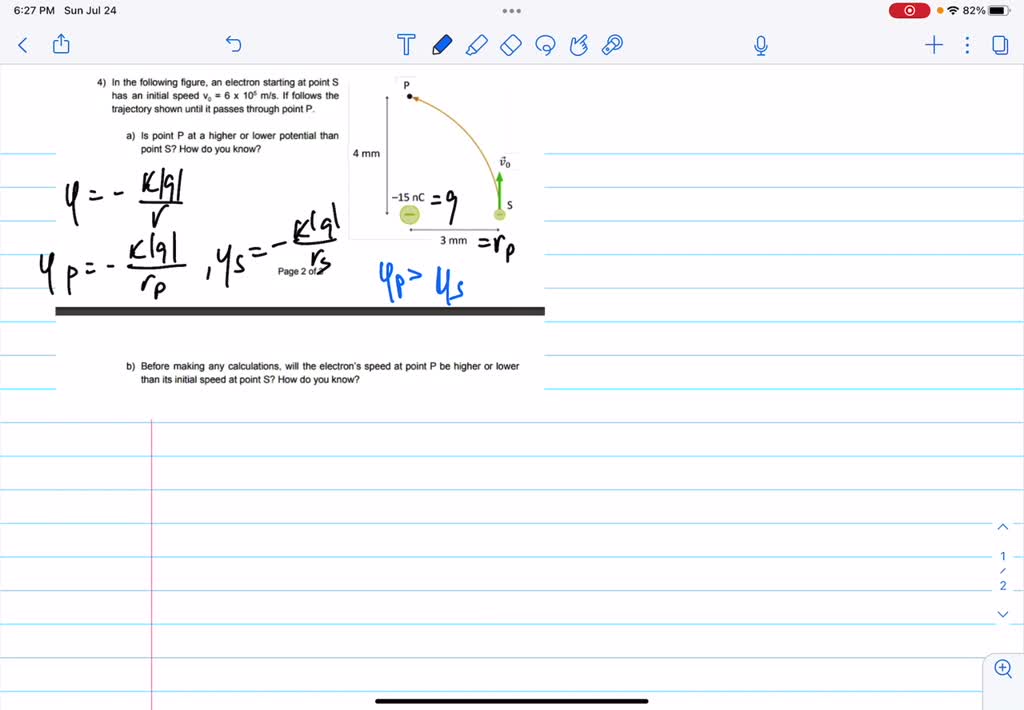 6:27 PM Sun Jul 24
82%
4) In the following figure, an electron starting at point S
has an initial speed v₀ = 6 x 10⁵ m/s. If follows the
trajectory shown until it passes through point P.
a) Is point P at a higher or lower potential than
point S? How do you know?
P
4 mm
v⃗₀
S
−15 nC = q
3 mm = rp
φ = - K|q| / r
φp = - K|q| / rp , φs = - K|q| / rs
Page 2 of
φp > φs
b) Before making any calculations, will the electron's speed at point P be higher or lower
than its initial speed at point S? How do you know?
1
/
2